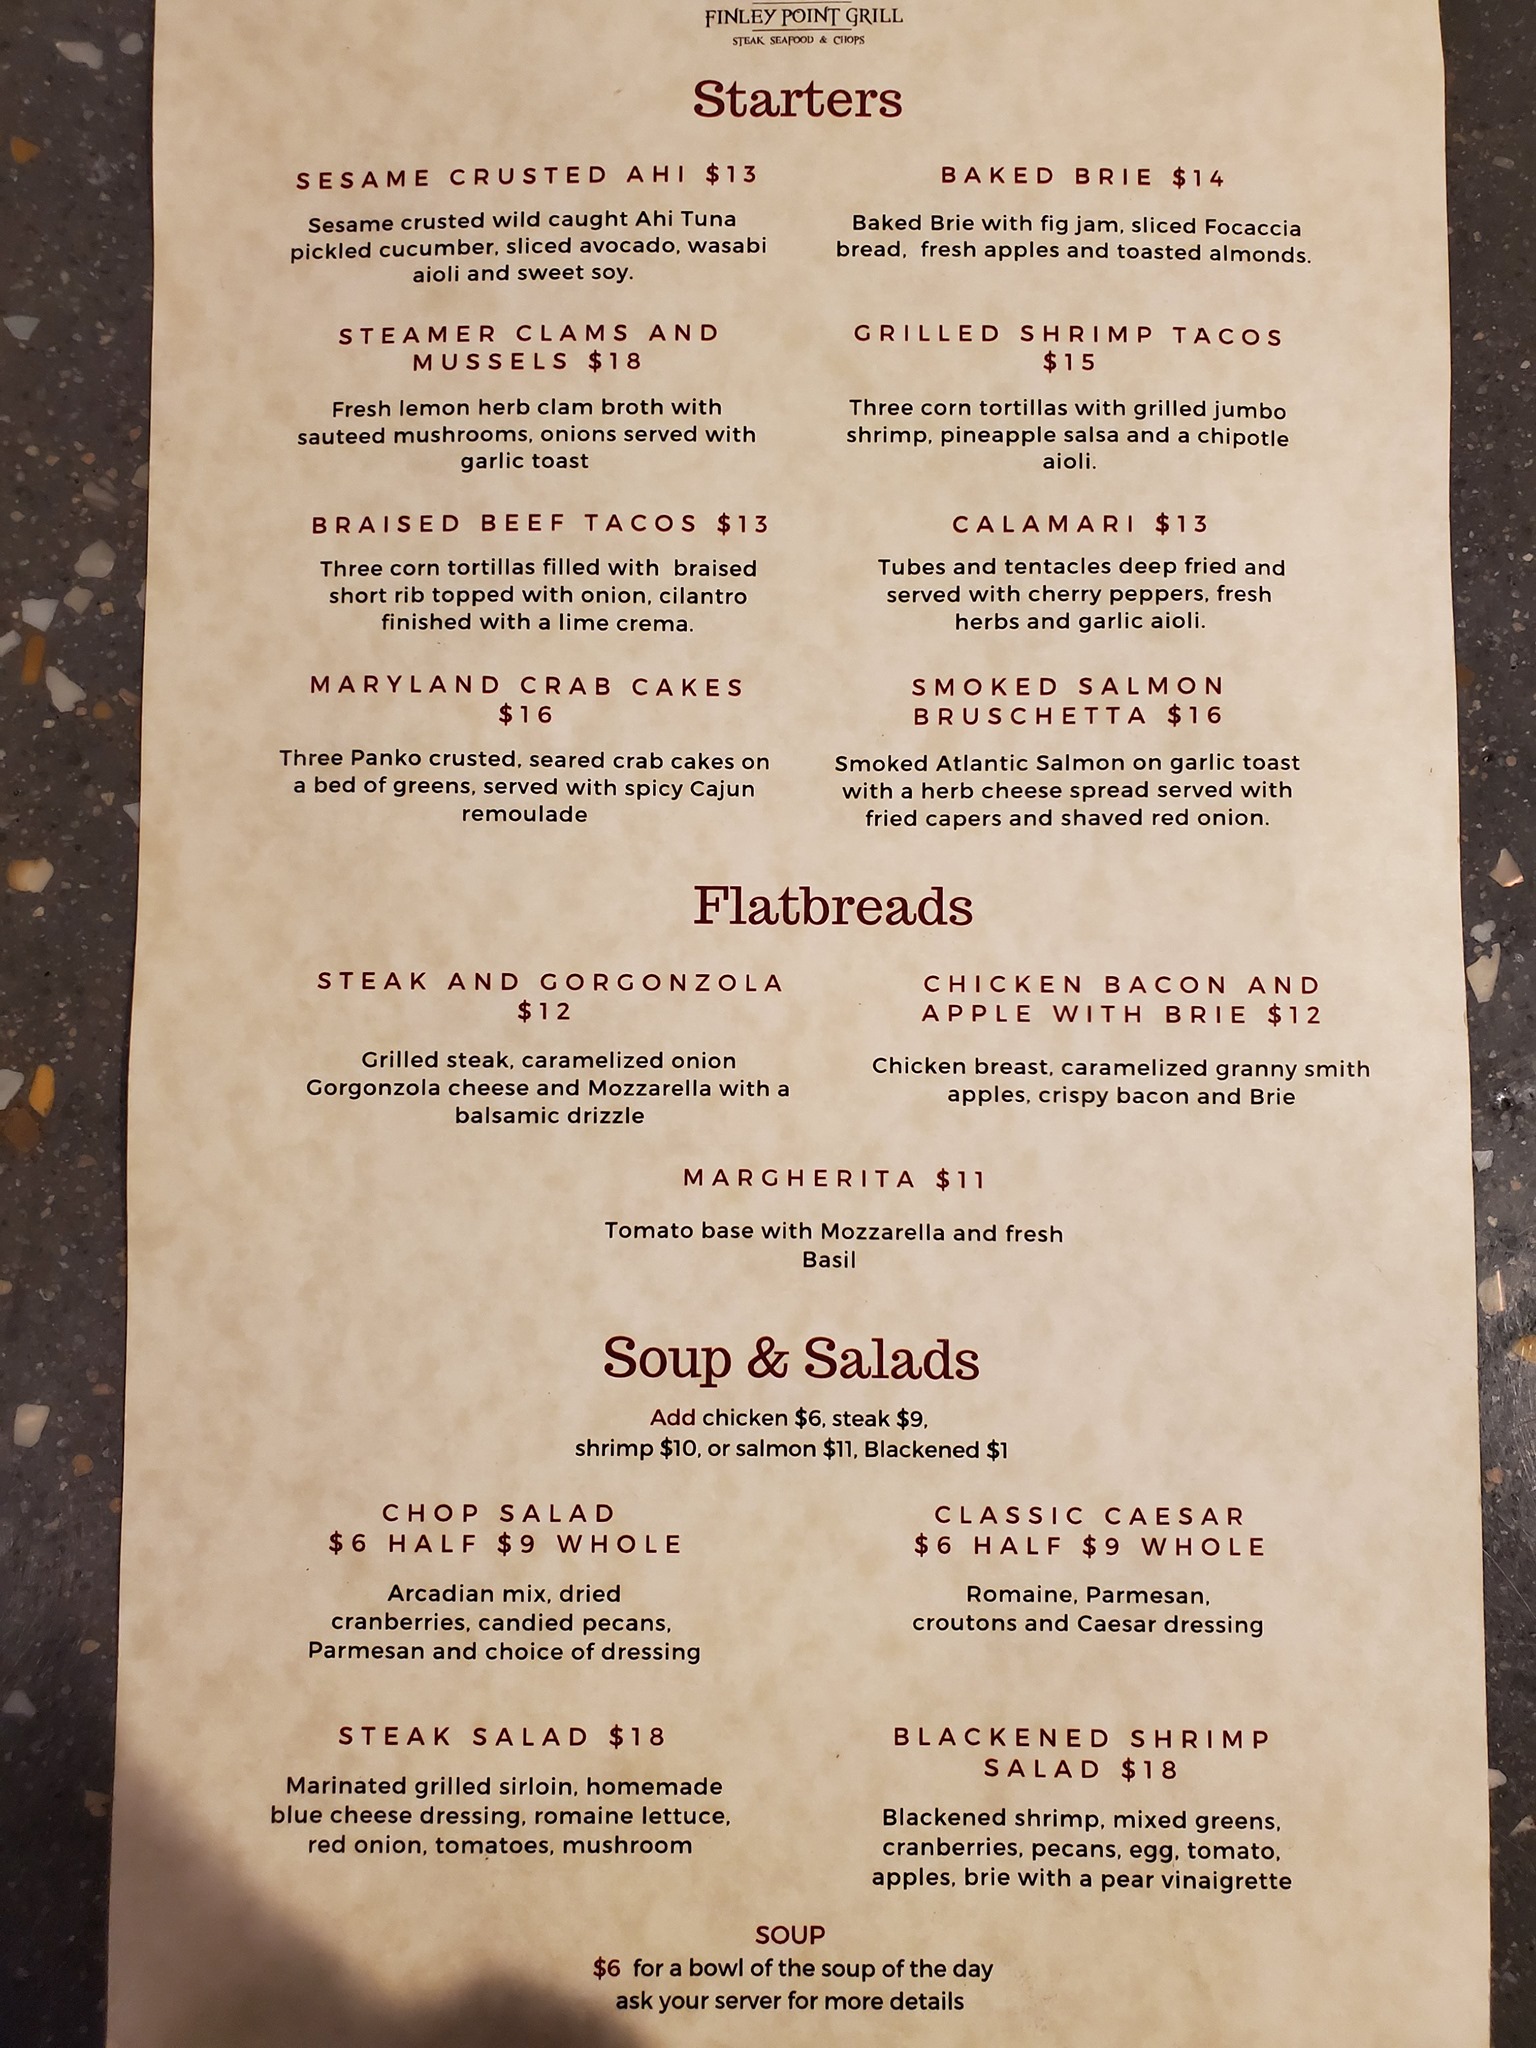 FINLEY POINT GRILL
STEAK SEAFOOD & CHOPS
Starters
SESAME CRUSTED AHI $13
Sesame crusted wild caught Ahi Tuna
pickled cucumber, sliced avocado, wasabi
aioli and sweet soy.
BAKED BRIE $14
Baked Brie with fig jam, sliced Focaccia
bread, fresh apples and toasted almonds.
STEAMER CLAMS AND
MUSSELS $18
Fresh lemon herb clam broth with
sauteed mushrooms, onions served with
garlic toast
GRILLED SHRIMP TACOS
$15
Three corn tortillas with grilled jumbo
shrimp, pineapple salsa and a chipotle
aioli.
BRAISED BEEF TACOS $13
Three corn tortillas filled with braised
short rib topped with onion, cilantro
finished with a lime crema.
CALAMARI $13
Tubes and tentacles deep fried and
served with cherry peppers, fresh
herbs and garlic aioli.
MARYLAND CRAB CAKES
$16
Three Panko crusted, seared crab cakes on
a bed of greens, served with spicy Cajun
remoulade
SMOKED SALMON
BRUSCHETTA $16
Smoked Atlantic Salmon on garlic toast
with a herb cheese spread served with
fried capers and shaved red onion.
Flatbreads
STEAK AND GORGONZOLA
$12
Grilled steak, caramelized onion
Gorgonzola cheese and Mozzarella with a
balsamic drizzle
CHICKEN BACON AND
APPLE WITH BRIE $12
Chicken breast, caramelized granny smith
apples, crispy bacon and Brie
MARGHERITA $11
Tomato base with Mozzarella and fresh
Basil
Soup & Salads
Add chicken $6, steak $9,
shrimp $10, or salmon $11, Blackened $1
CHOP SALAD
$6 HALF $9 WHOLE
Arcadian mix, dried
cranberries, candied pecans,
Parmesan and choice of dressing
CLASSIC CAESAR
$6 HALF $9 WHOLE
Romaine, Parmesan,
croutons and Caesar dressing
STEAK SALAD $18
Marinated grilled sirloin, homemade
blue cheese dressing, romaine lettuce,
red onion, tomatoes, mushroom
BLACKENED SHRIMP
SALAD $18
Blackened shrimp, mixed greens,
cranberries, pecans, egg, tomato,
apples, brie with a pear vinaigrette
SOUP
$6 for a bowl of the soup of the day
ask your server for more details